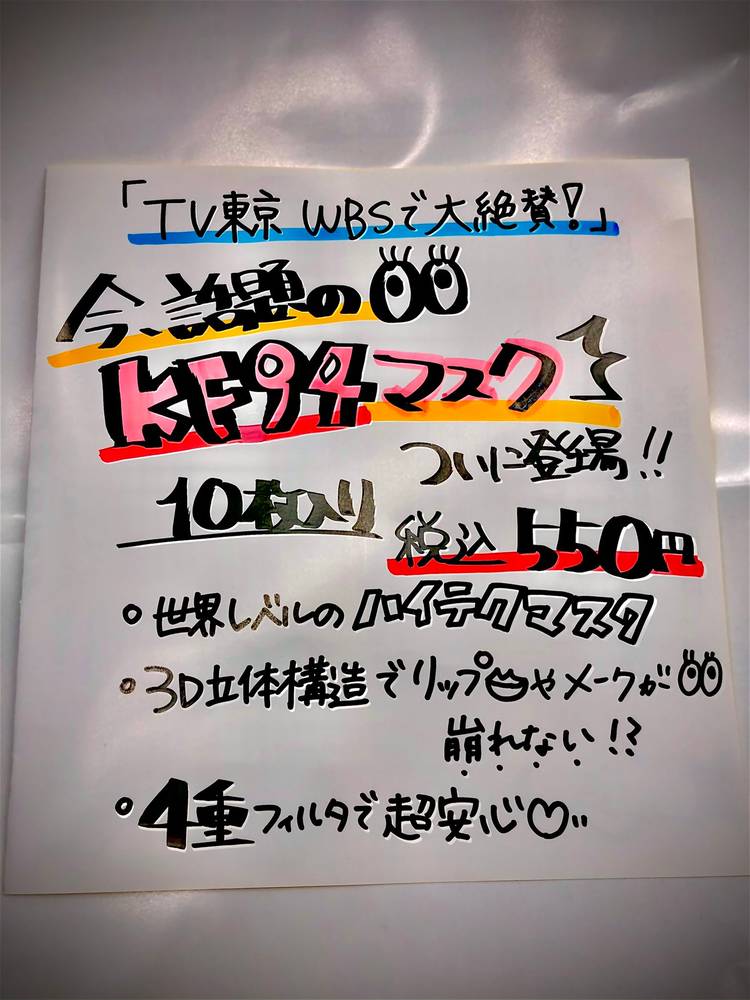 「TV東京 WBSで大絶賛!」
今、話題の
KF94マスク
ついに登場!!
10枚入り
税込550円
・世界レベルのハイテクマスク
・3D立体構造でリップやメークが
崩れない!?
・4重フィルタで超安心♡